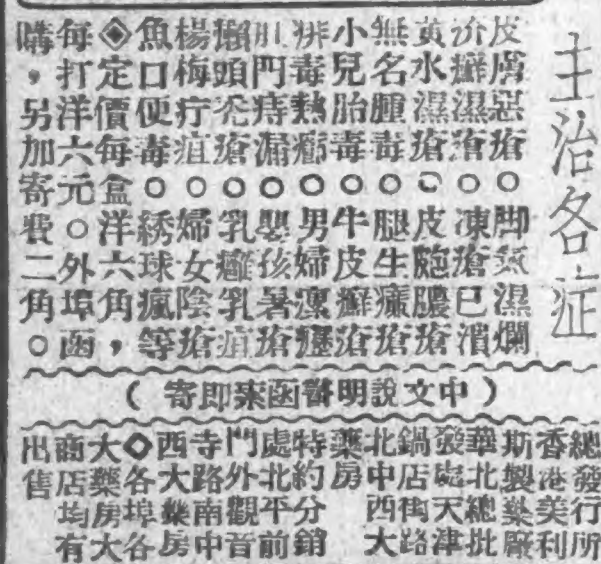 主治各症
皮膚惡瘡○脚氣濕爛
疥癬濕瘡○凍瘡已潰
黃水濕瘡○皮皰膿瘡
無名腫毒○腿生癩瘡
小兒胎毒○牛皮癬瘡
痱毒熱癤○男婦瘰癧
肛門痔漏○嬰孩暑瘡
獺頭禿瘡○乳癰乳疽
楊梅疔疽○婦女陰瘡
魚口便毒○綉球瘋等
◈定價每盒洋六角，
每打洋六元○外埠函
購，另加寄費二角○
（中文說明書函索即寄）
總發行所
香港美利
斯製藥廠
華北總批
發處天津
鍋店街路
北中西大
藥房
特約分銷
處北平前
門外觀音
寺路南中
西大藥房
◇各埠各
大藥房大
商店均有
出售